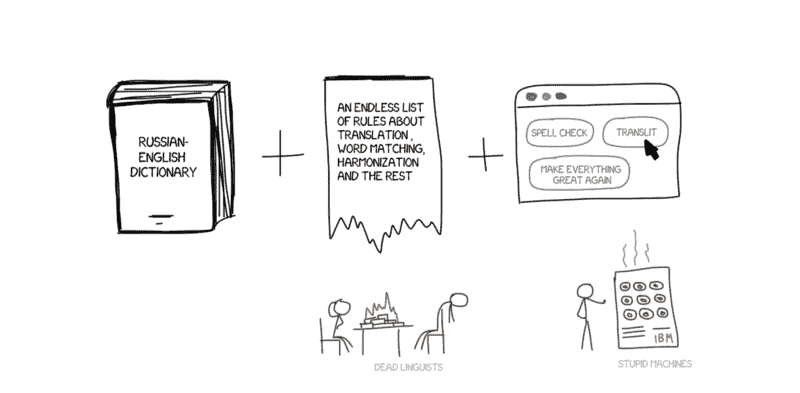 RUSSIAN-
ENGLISH
DICTIONARY
AN ENDLESS LIST
OF RULES ABOUT
TRANSLATION,
WORD MATCHING,
HARMONIZATION
AND THE REST
SPELL CHECK
TRANSLIT
MAKE EVERYTHING
GREAT AGAIN
IBM
DEAD LINGUISTS
STUPID MACHINES